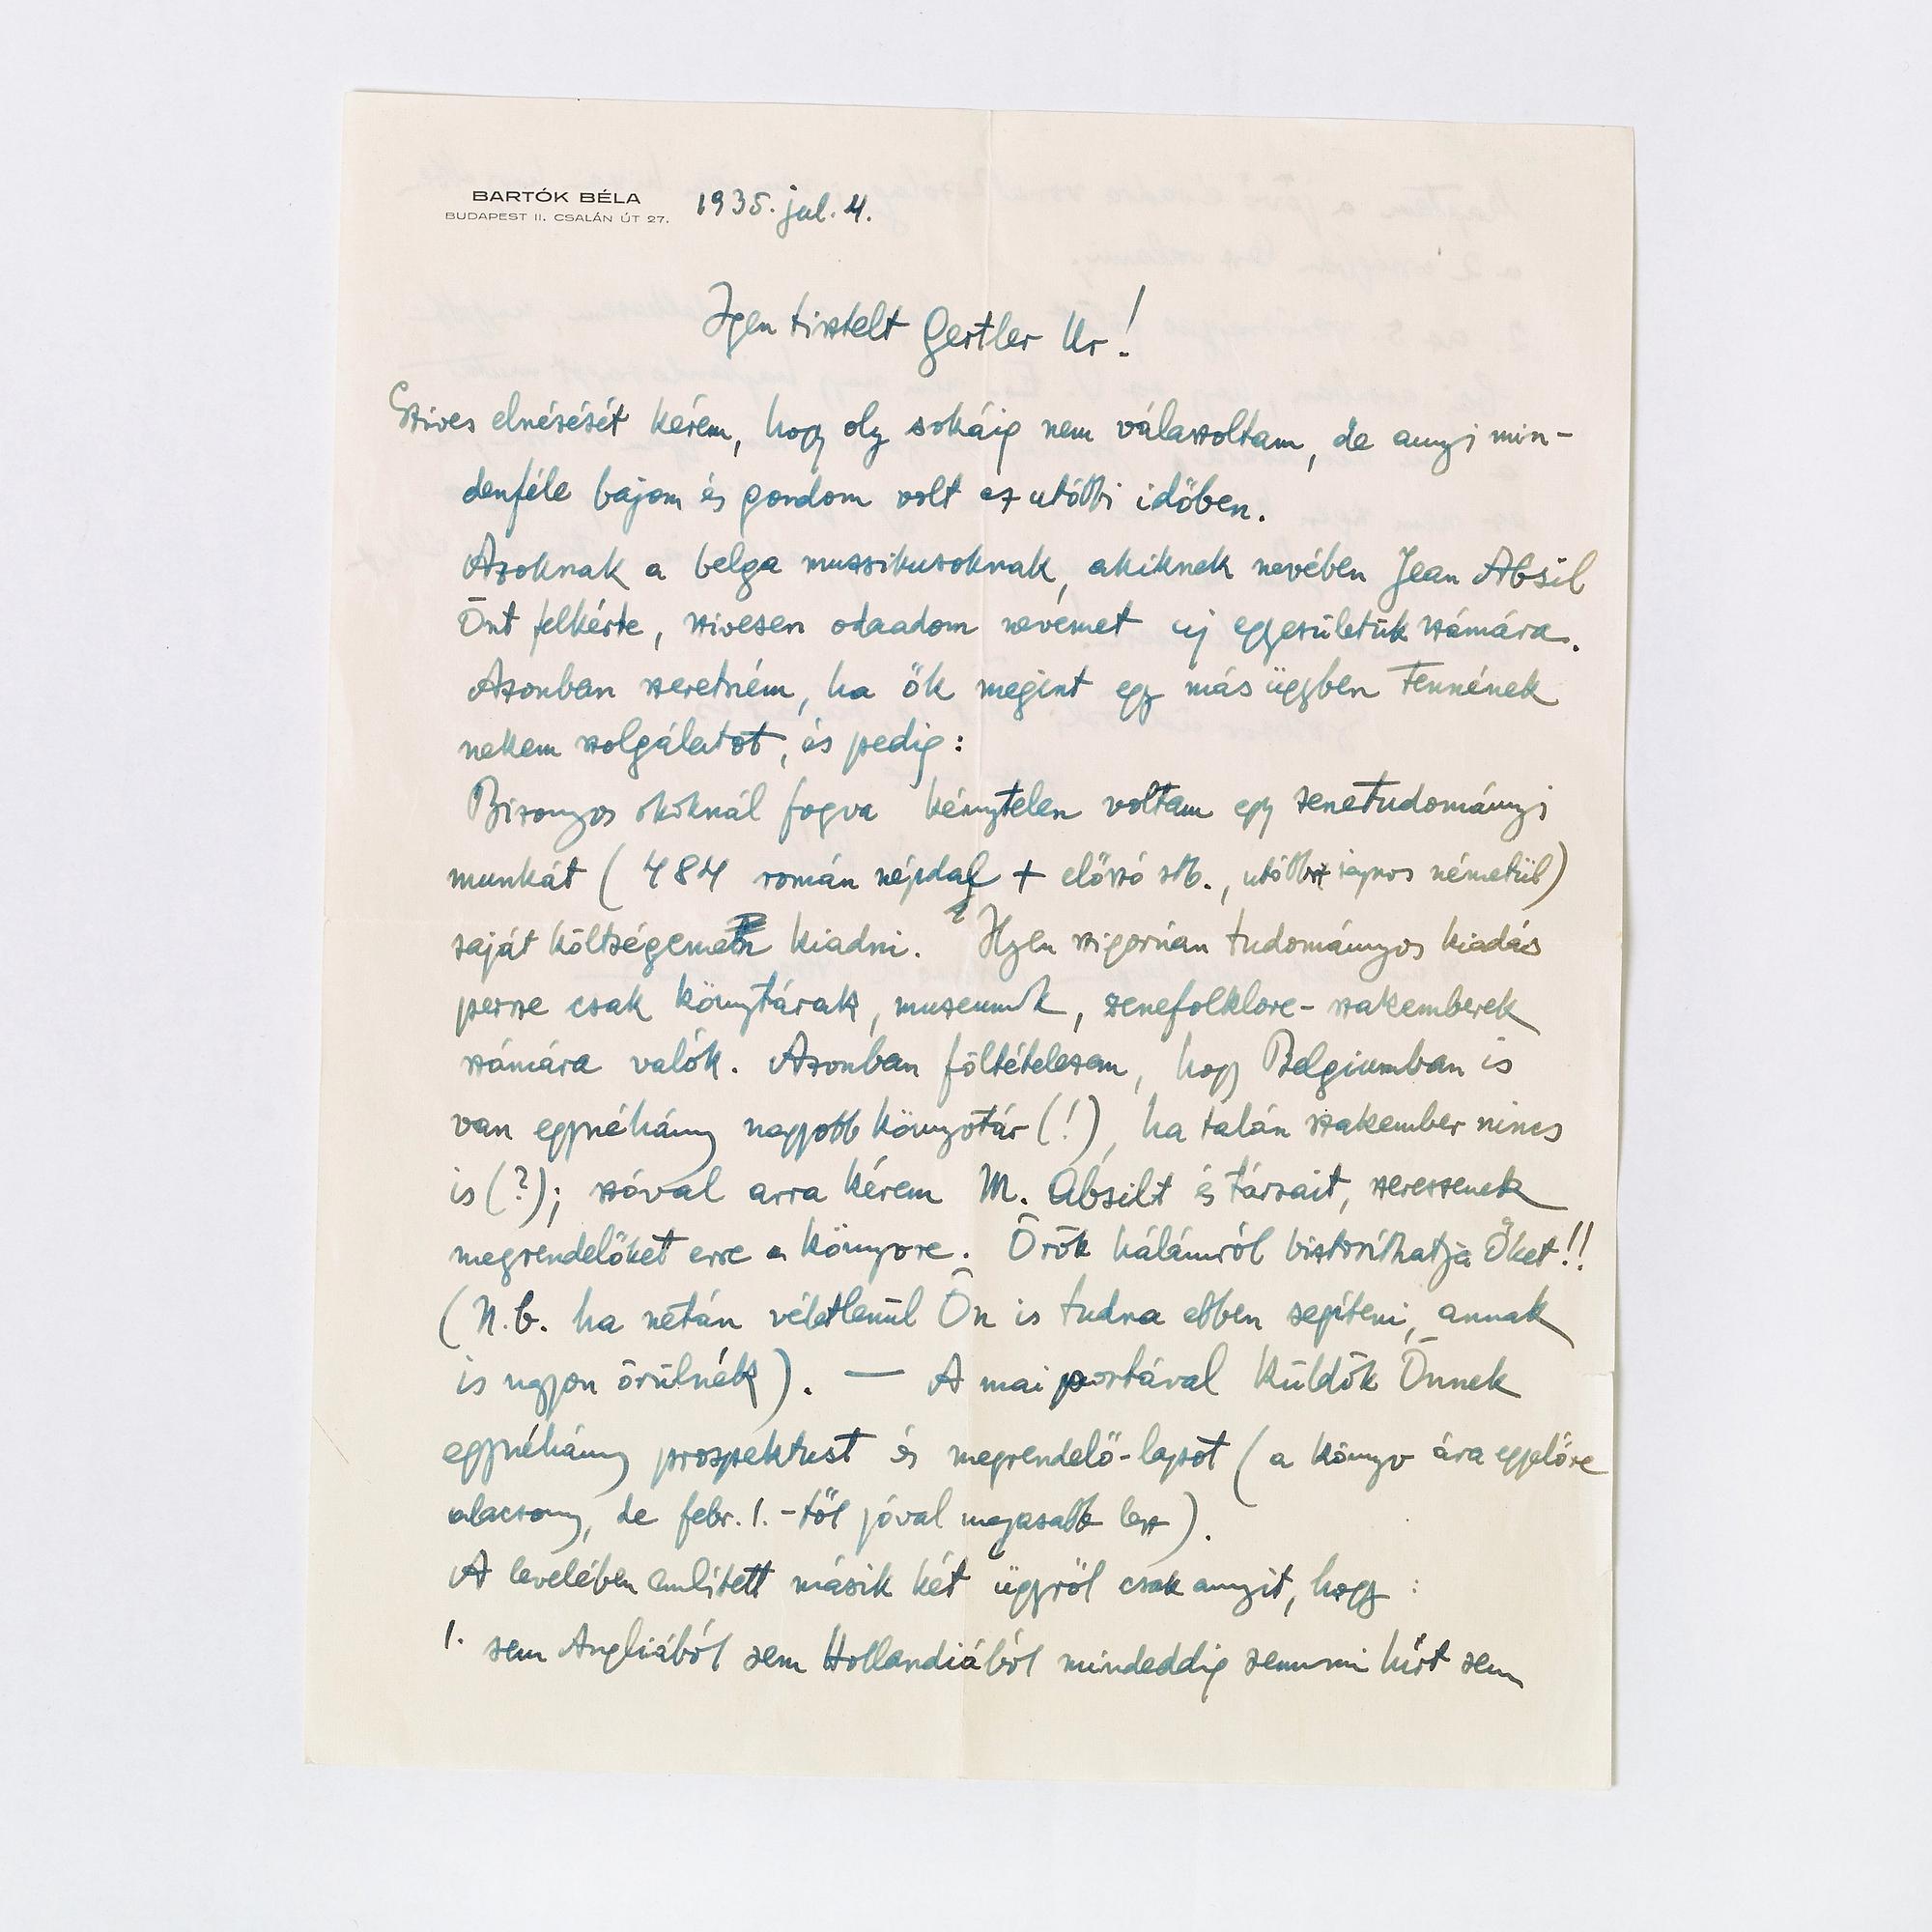 BARTÓK BÉLA
BUDAPEST II. CSALÁN ÚT 27.
1935. jul. 4.
Igen tisztelt Gertler Ur!
Szives elnézését kérem, hogy oly sokáig nem válaszoltam, de annyi min-
denféle bajom és gondom volt az utóbbi időben.
Azoknak a belga muzsikusoknak, akiknek nevében Jean Absil
Önt felkérte, szivesen odaadom nevemet uj egyesületük számára.
Azonban szeretném, ha ők megint egy más ügyben tennének
nekem szolgálatot, és pedig:
Bizonyos okoknál fogva kénytelen voltam egy zenetudományi
munkát (484 román népdal + előszó stb., utóbbi sajnos németül)
saját költségemen kiadni. Ilyen szigorúan tudományos kiadás
persze csak könyvtárak, muzeumok, zenefolklore-szakemberek
számára valók. Azonban föltételezem, hogy Belgiumban is
van egynéhány nagyobb könyvtár (!), ha talán szakember nincs
is (?); szóval arra kérem M. Absilt és társait, szerezzenek
megrendelőket erre a könyvre. Örök hálámról biztosíthatja Őket!!
(N.b. ha netán véletlenül Ön is tudna ebben segíteni, annak
is nagyon örülnék). — A mai postával küldök Önnek
egynéhány prospektust és megrendelő-lapot (a könyv ára egyelőre
alacsony, de febr. 1.-től jóval magasabb lesz).
A levelében emlitett másik két ügyről csak annyit, hogy :
1. sem Angliából sem Hollandiából mindeddig semmi hírt sem